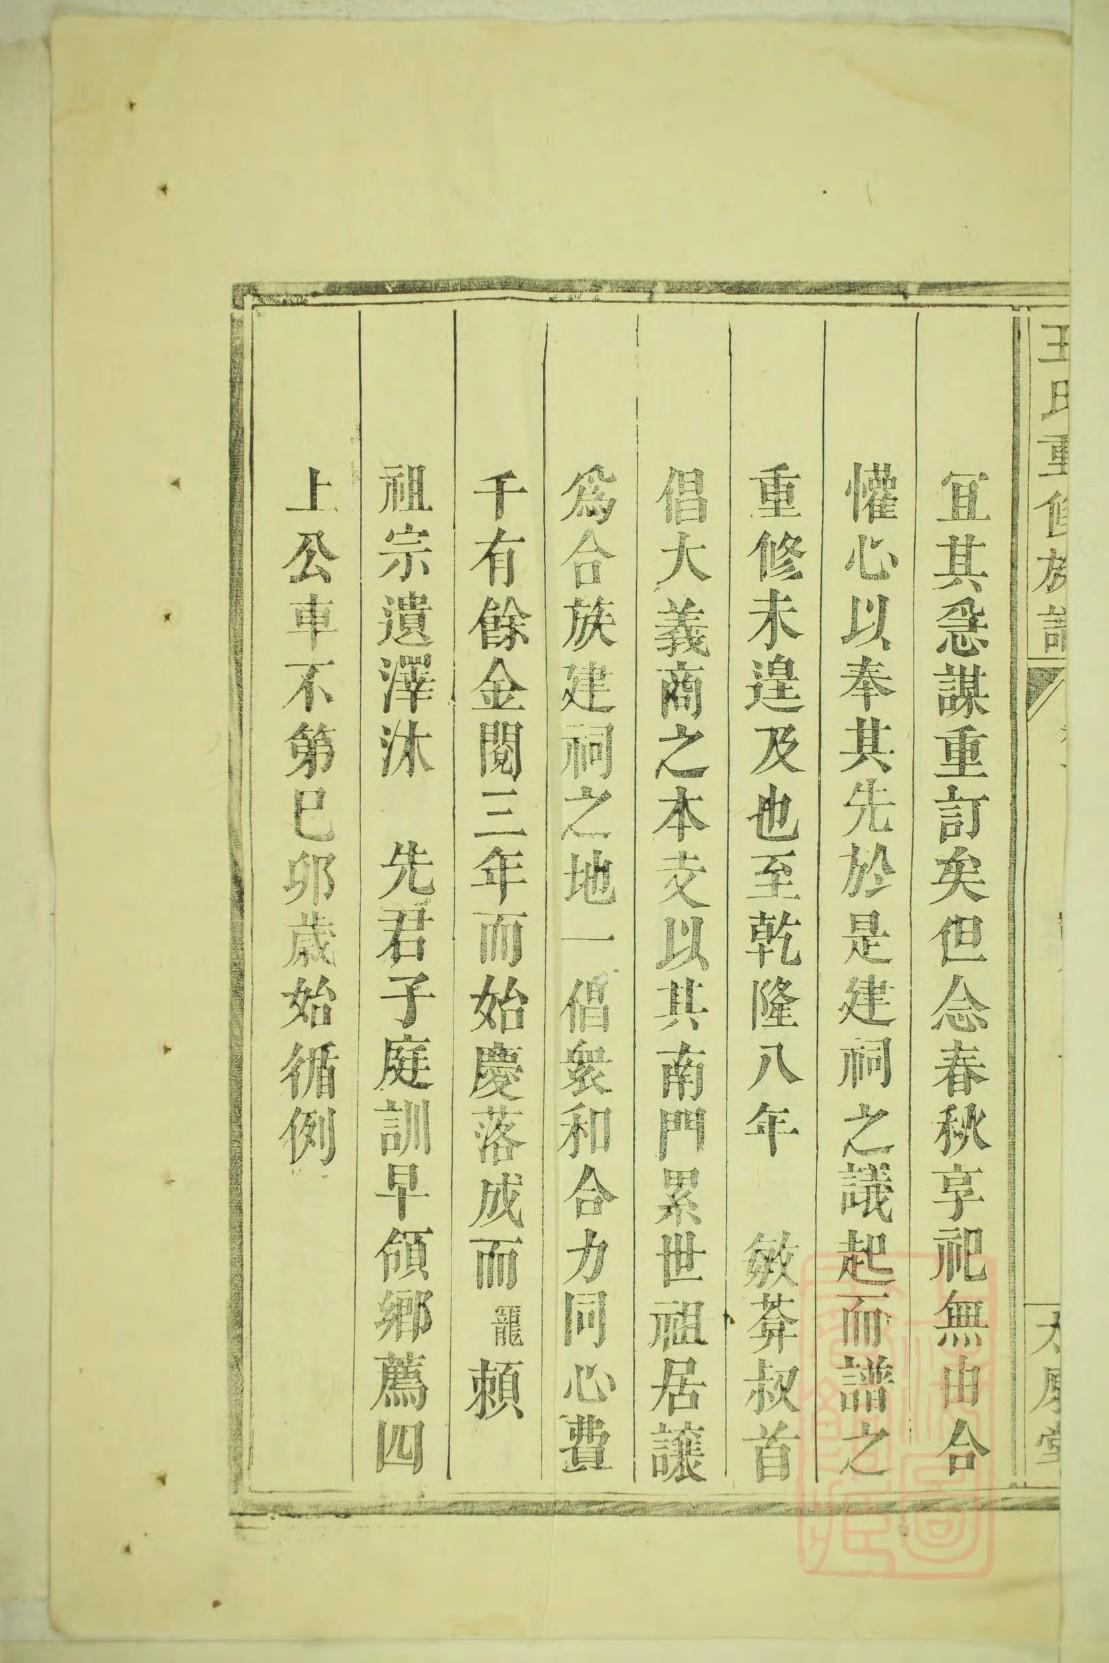 王氏重修族譜
宜其急謀重訂矣但念春秋享祀無由合
懽心以奉其先於是建祠之議起而譜之
重修未遑及也至乾隆八年　敏莽叔首
倡大義商之本支以其南門累世祖居讓
為合族建祠之地一倡衆和合力同心費
千有餘金閱三年而始慶落成而龍賴
祖宗遺澤沐　先君子庭訓早領鄉薦四
上公車不第巳卯歲始循例